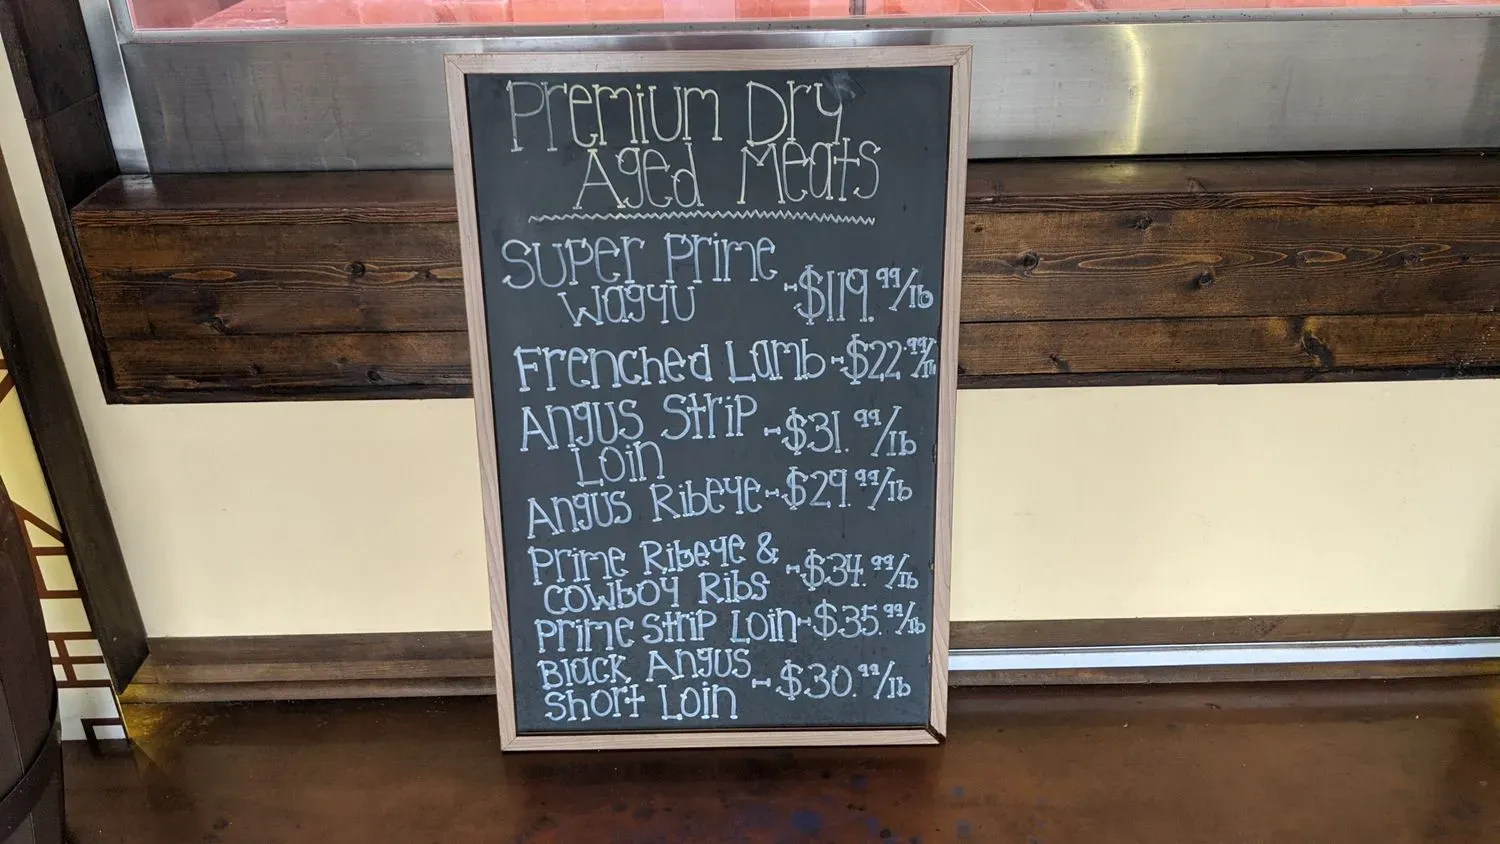 Premium Dry
Aged Meats
Super Prime
Wagyu -$119.99/lb
Frenched Lamb -$22.99/lb
Angus Strip
Loin -$31.99/lb
Angus Ribeye -$29.99/lb
Prime Ribeye &
Cowboy Ribs -$34.99/lb
Prime Strip Loin -$35.99/lb
Black Angus
Short Loin -$30.99/lb